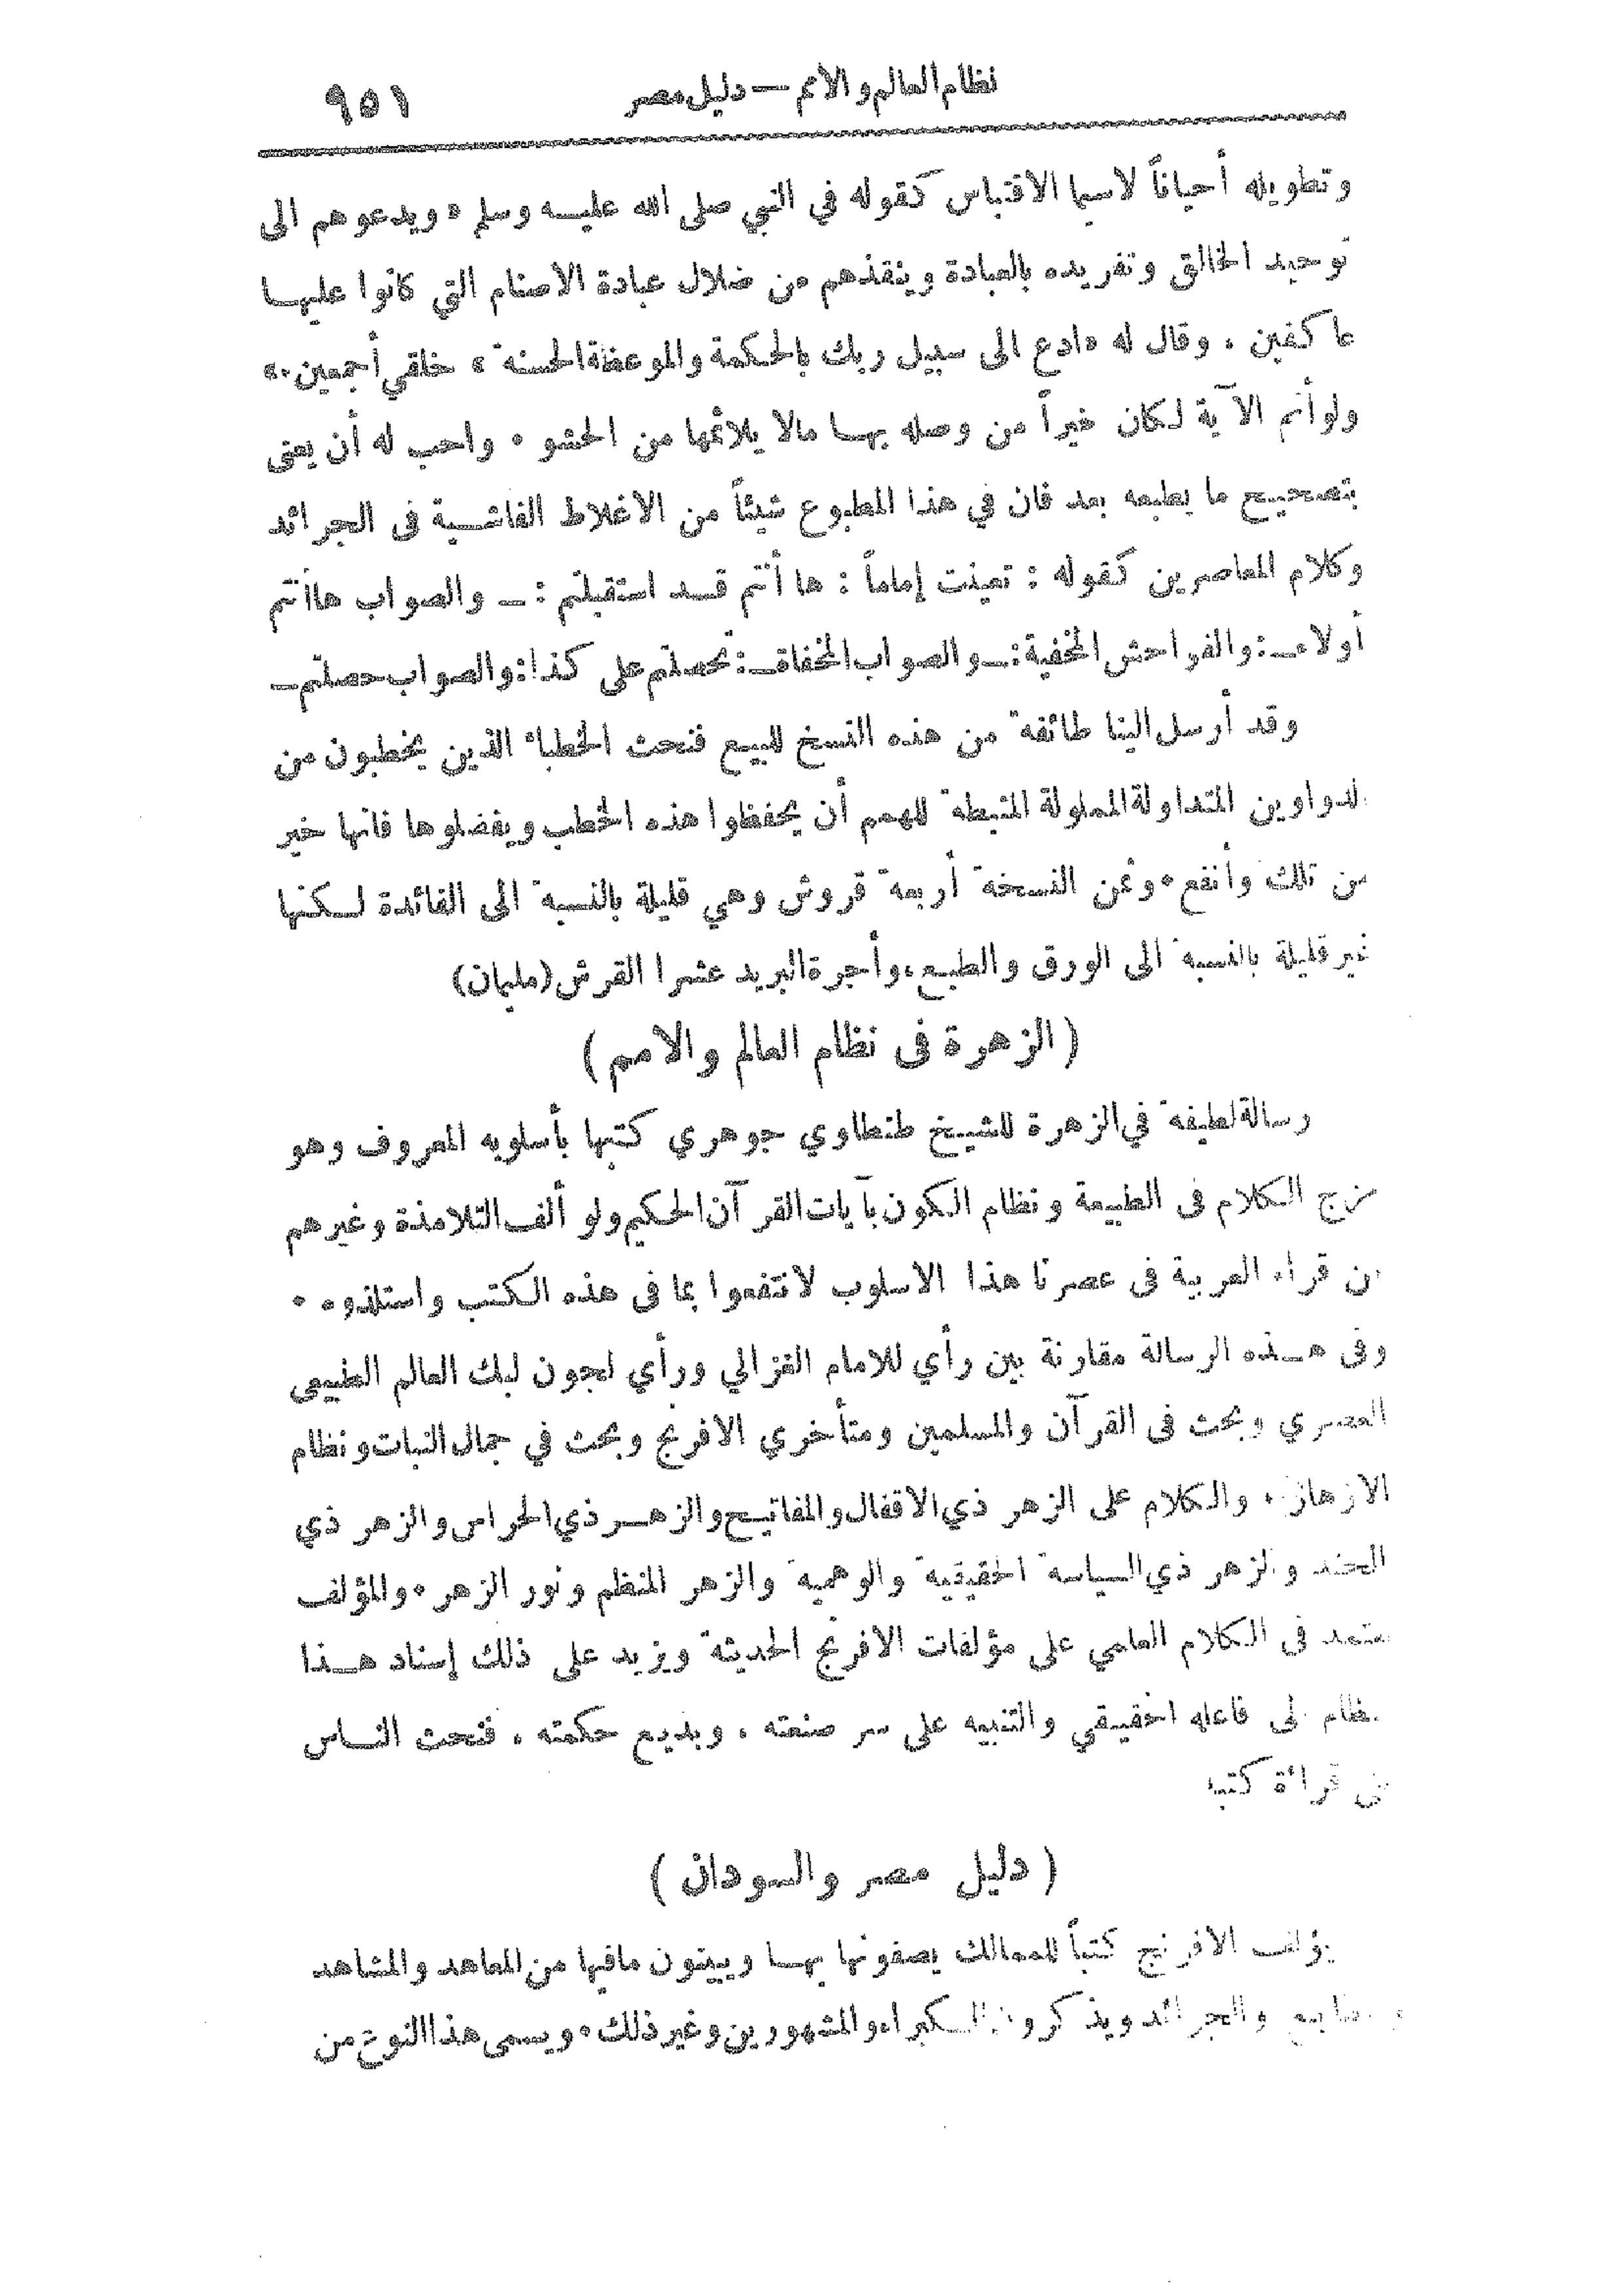 نظام العالم والامم — دليل مصر ٩٥١
وتطويله أحياناً لاسيما الاقتباس كقوله في النبي صلى الله عليه وسلم « ويدعوهم الى
توحيد الخالق وتفريده بالعبادة وينقذهم من ضلال عبادة الاصنام التي كانوا عليها
عاكفين . وقال له «ادع الى سبيل ربك بالحكمة والموعظة الحسنة » خلقي أجمعين . »
ولو أتم الآية لكان خيراً من وصله بها مالا يلائمها من الحشو . واحب له أن يعنى
بتصحيح ما يطبعه بعد فان في هذا المطبوع شيئاً من الاغلاط الفاشية فى الجرائد
وكلام المعاصرين كقوله : تعينت إماماً : ها أنتم قد استقبلتم : — والصواب هاأنتم
أولاء — : والفواحش المخفية : — والصواب المخفاة — : تحصلتم على كذا : والصواب حصلتم —
وقد أرسل الينا طائفة من هذه النسخ للبيع فنحث الخطباء الذين يخطبون من
الدواوين المتداولة المملولة المثبطة للهمم أن يحفظوا هذه الخطب ويفضلوها فانها خير
من تلك وأنفع . وثمن النسخة أربعة قروش وهي قليلة بالنسبة الى الفائدة لكنها
غير قليلة بالنسبة الى الورق والطبع ، وأجرة البريد عشرا القرش (مليمان)
( الزهرة فى نظام العالم والامم )
رسالة لطيفة في الزهرة للشيخ طنطاوي جوهري كتبها بأسلوبه المعروف وهو
مزج الكلام فى الطبيعة ونظام الكون بآيات القرآن الحكيم ولو ألف التلامذة وغيرهم
من قراء العربية فى عصرنا هذا الاسلوب لانتفعوا بما فى هذه الكتب واستلذوه .
وفى هذه الرسالة مقارنة بين رأي للامام الغزالي ورأي لجون لبك العالم الطبيعى
العصري وبحث فى القرآن والمسلمين ومتأخري الافرنج وبحث في جمال النبات ونظام
الازهار . والكلام على الزهر ذي الاقفال والمفاتيح والزهر ذي الحراس والزهر ذي
الجند والزهر ذي السياسة الحقيقية والوهمية والزهر المنظم ونور الزهر . والمؤلف
يعتمد فى الكلام العلمي على مؤلفات الافرنج الحديثة ويزيد على ذلك إسناد هذا
النظام الى فاعله الحقيقي والتنبيه على سر صنعته . وبديع حكمته . فنحث الناس
على قراءة كتبه
( دليل مصر والسودان )
يؤلف الافرنج كتباً للممالك يصفونها بها ويبينون مافيها من المعاهد والمشاهد
والجرائد ويذكرون الكبراء والمشهورين وغير ذلك . ويسمى هذا النوع من